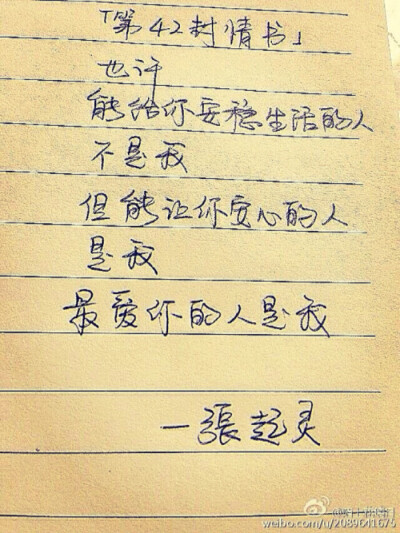 「第42封情书」
也许
能给你安稳生活的人
不是我
但能让你安心的人
是我
最爱你的人是我
—張起灵
weibo.com/u/2089641675